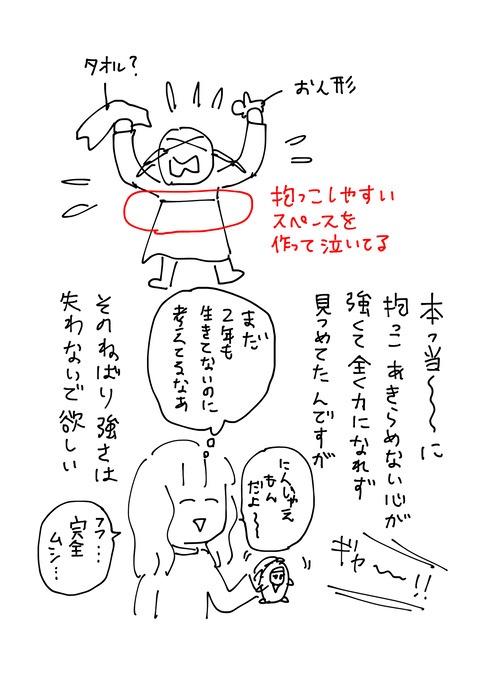 タオル?
お人形
抱っこしやすい
スペースを
作って泣いてる
本っ当〜〜〜に
抱っこあきらめない心が
強くて全く力になれず
見つめてたんですが
そのねばり強さは
失わないで欲しい
まだ
2年も
生きてないのに
考えてるなあ
にんじゃえ
もん
だよ〜〜
フフ…
完全
ムシ…
ギャ〜〜!!